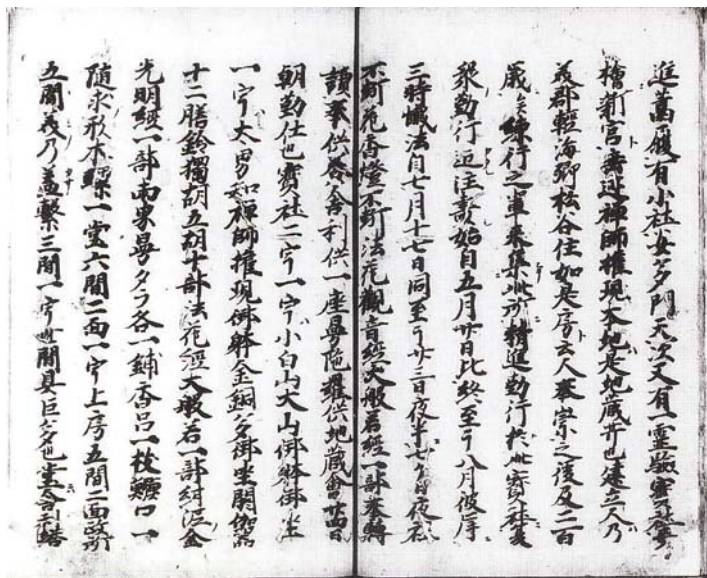 進菖履有小社女多門天次又有一霊験寳社笒
檜新宮審迹禅師権現本地是地蔵井也建立人乃
義郡軽海郷松谷住如是房云人奉崇之後及二百
歳練行之輩来集此所精進勤行於此寳社夏
衆勤行近注之始自五月廿日比終至于八月彼岸
三時懺法自七月十七日同至于廿三日夜半七ケ日夜不
不断花香燈不断法花観音経大般若経一部奉轉
讀奉供養舎利供一座曼陀羅供地蔵會廿四日
朝勤仕也寳社二宇一宇小白山大山佛躰御坐
一宇太男知禅師権現佛躰金銅多御坐閼伽器
十二膳鈴獨胡五胡十部法花経大般若一部紺泥金
光明経一部両界曼タラ各一鋪香呂一枝鰐口一
随求形木螺一堂六間二面一宇上房五間二面政所
五間萱乃葺繋三間一宇世間具巨多也堂舎利結